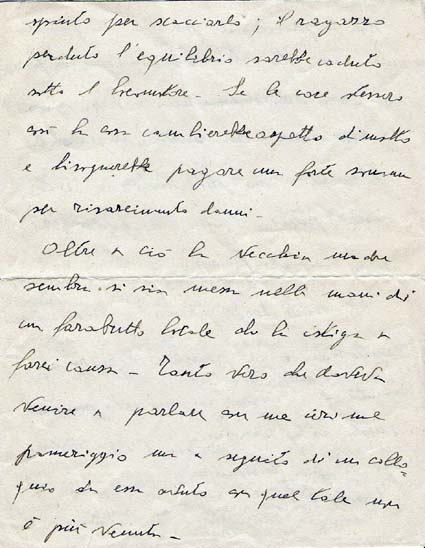 spinto per scacciarlo; il ragazzo
perduto l'equilibrio sarebbe caduto
sotto l
Se le cose stessero
così la cosa cambierebbe aspetto di molto
e bisognerebbe pagare una forte somma
per risarcimento danni -
Oltre a ciò la vecchia madre
sembra si sia messa nelle mani di
un farabutto locale che la istiga a
farci causa - Tanto vero che doveva
venire a parlare con me ieri nel
pomeriggio ma a seguito di un collo=
quio da essa avuto con quel tale non
è più venuta -